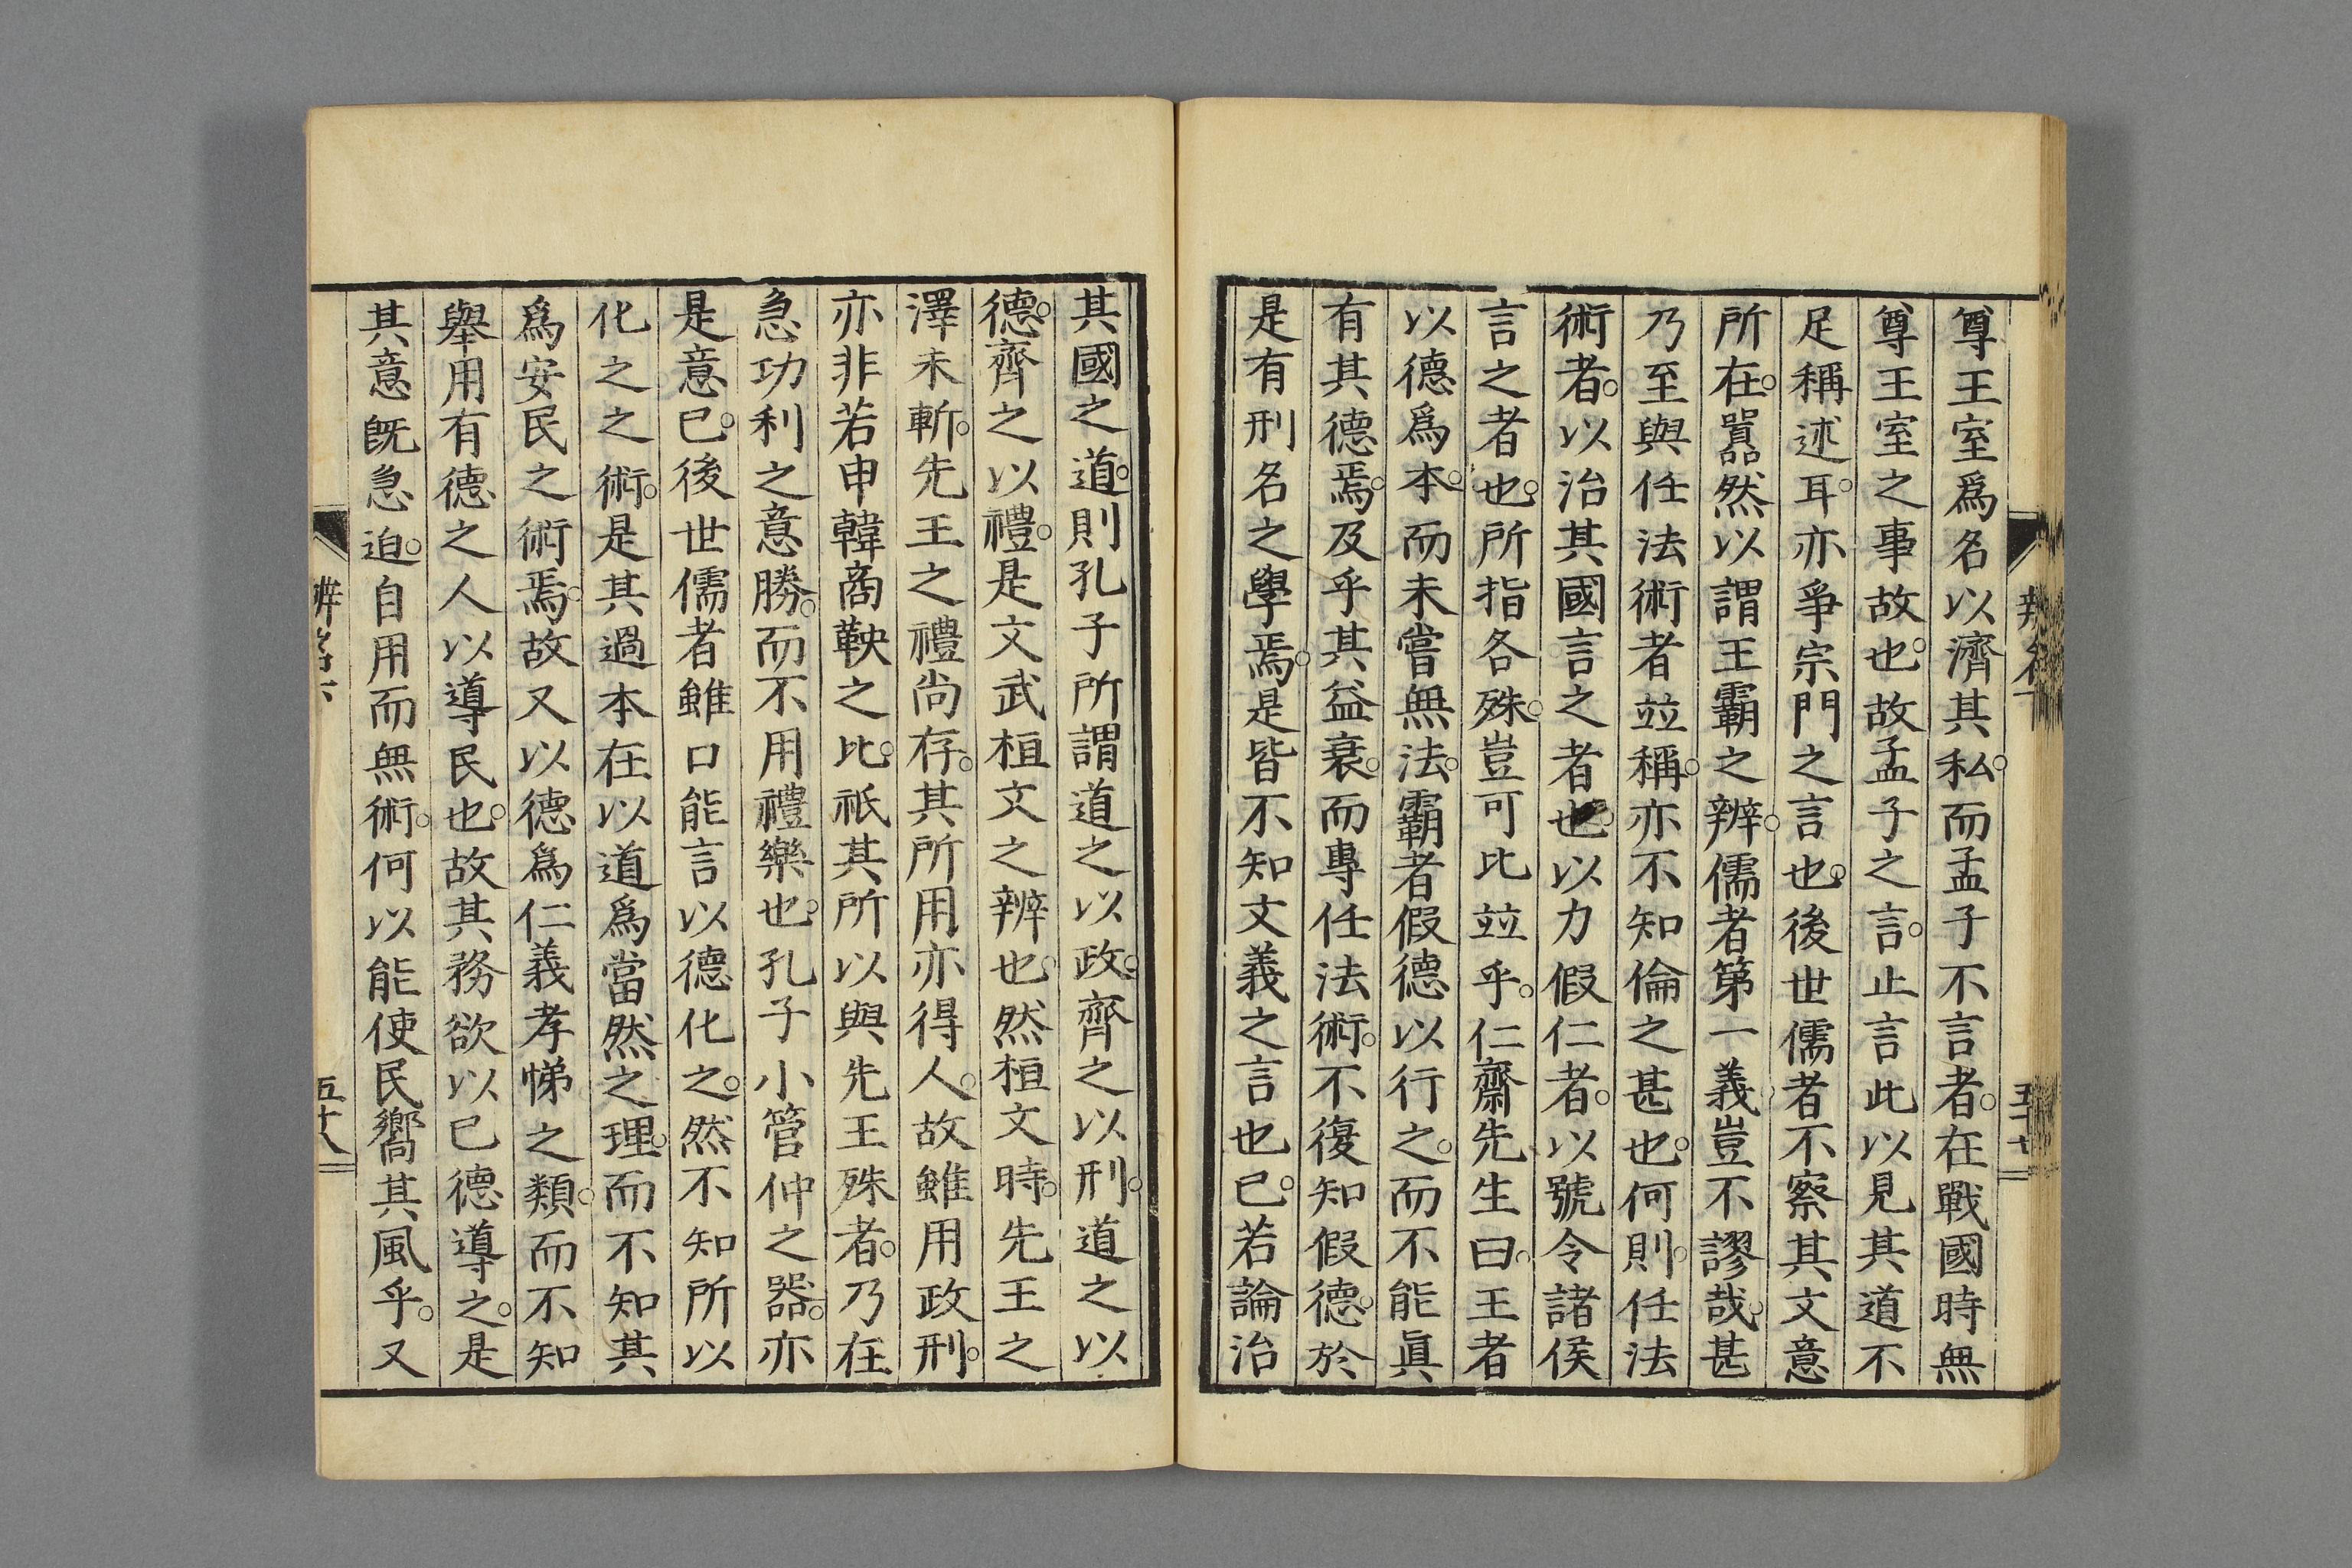 尊王室爲名以濟其私。而孟子不言者。在戰國時無
尊王室之事故也。故孟子之言。止言此以見其道不
足稱述耳。亦爭宗門之言也。後世儒者不察其文意
所在。囂然以謂王霸之辨。儒者第一義豈不謬哉。甚
乃至與任法術者竝稱。亦不知倫之甚也。何則。任法
術者。以治其國言之者也。以力假仁者。以號令諸侯
言之者也。所指各殊。豈可比竝乎。仁齋先生曰。王者
以德爲本。而未嘗無法。霸者假德以行之。而不能眞
有其德焉。及乎其益衰。而專任法術。不復知假德。於
是有刑名之學焉。是皆不知文義之言也已。若論治
其國之道。則孔子所謂道之以政。齊之以刑。道之以
德。齊之以禮。是文武桓文之辨也。然桓文時。先王之
澤未斬。先王之禮尚存。其所用亦得人。故雖用政刑。
亦非若申韓商鞅之比。祇其所以與先王殊者。乃在
急功利之意勝。而不用禮樂也。孔子小管仲之器。亦
是意已。後世儒者雖口能言以德化之。然不知所以
化之之術。是其過本在以道爲當然之理。而不知其
爲安民之術焉。故又以德爲仁義孝悌之類。而不知
舉用有德之人以導民也。故其務欲以已德導之。是
其意旣急迫。自用而無術。何以能使民嚮其風乎。又
辨名下
五十八